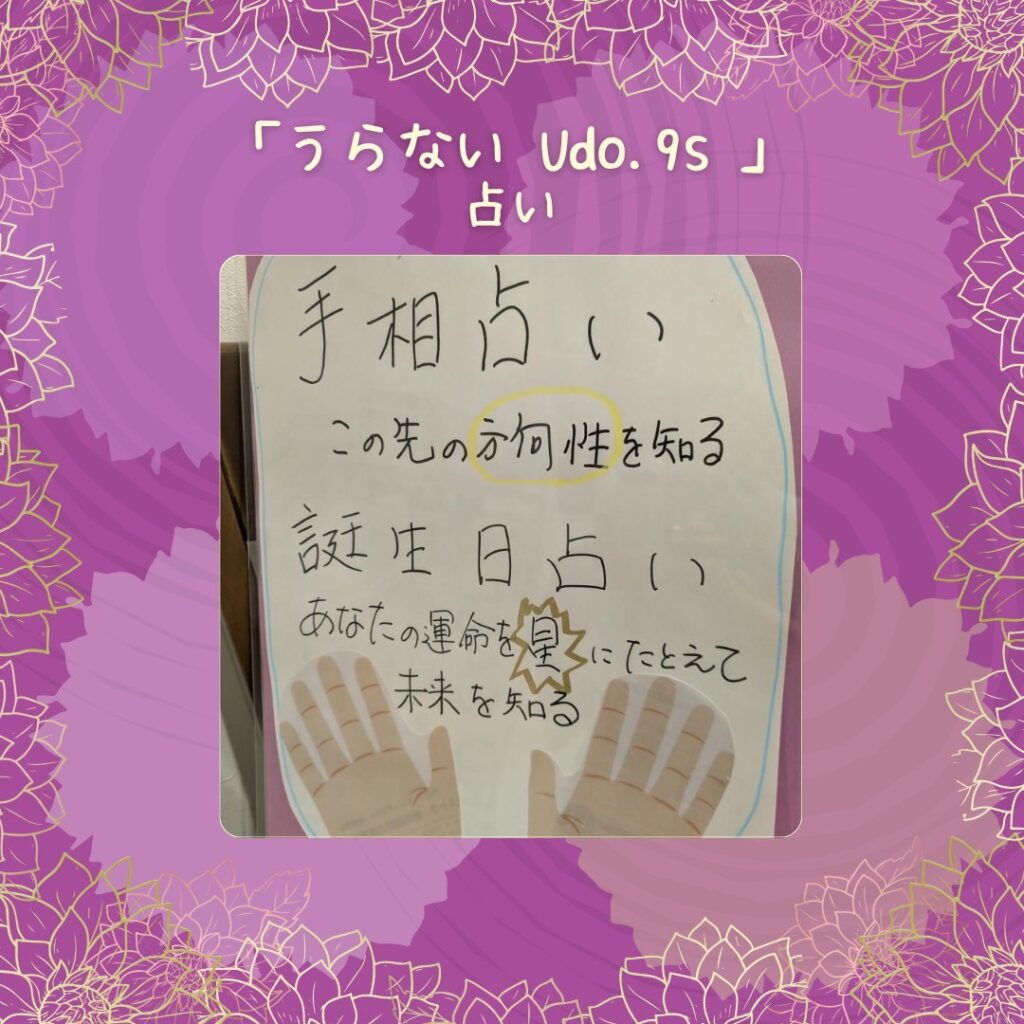 「うらない Udo.9s 」
占い
手相占い
この先の方向性を知る
誕生日占い
あなたの運命を星にたとえて
未来を知る